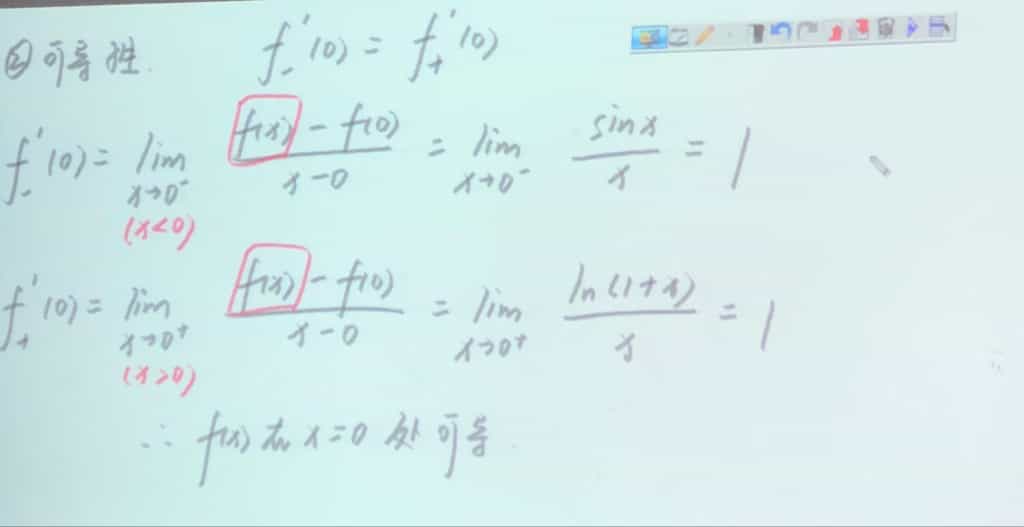 ② 可导性. f₋'(0) = f₊'(0)
f₋'(0) = lim x→0⁻ (x<0) (f(x) − f(0))/(x−0) = lim x→0⁻ sinx/x = 1
f₊'(0) = lim x→0⁺ (x>0) (f(x) − f(0))/(x−0) = lim x→0⁺ ln(1+x)/x = 1
∴ f(x) 在 x=0 处可导.